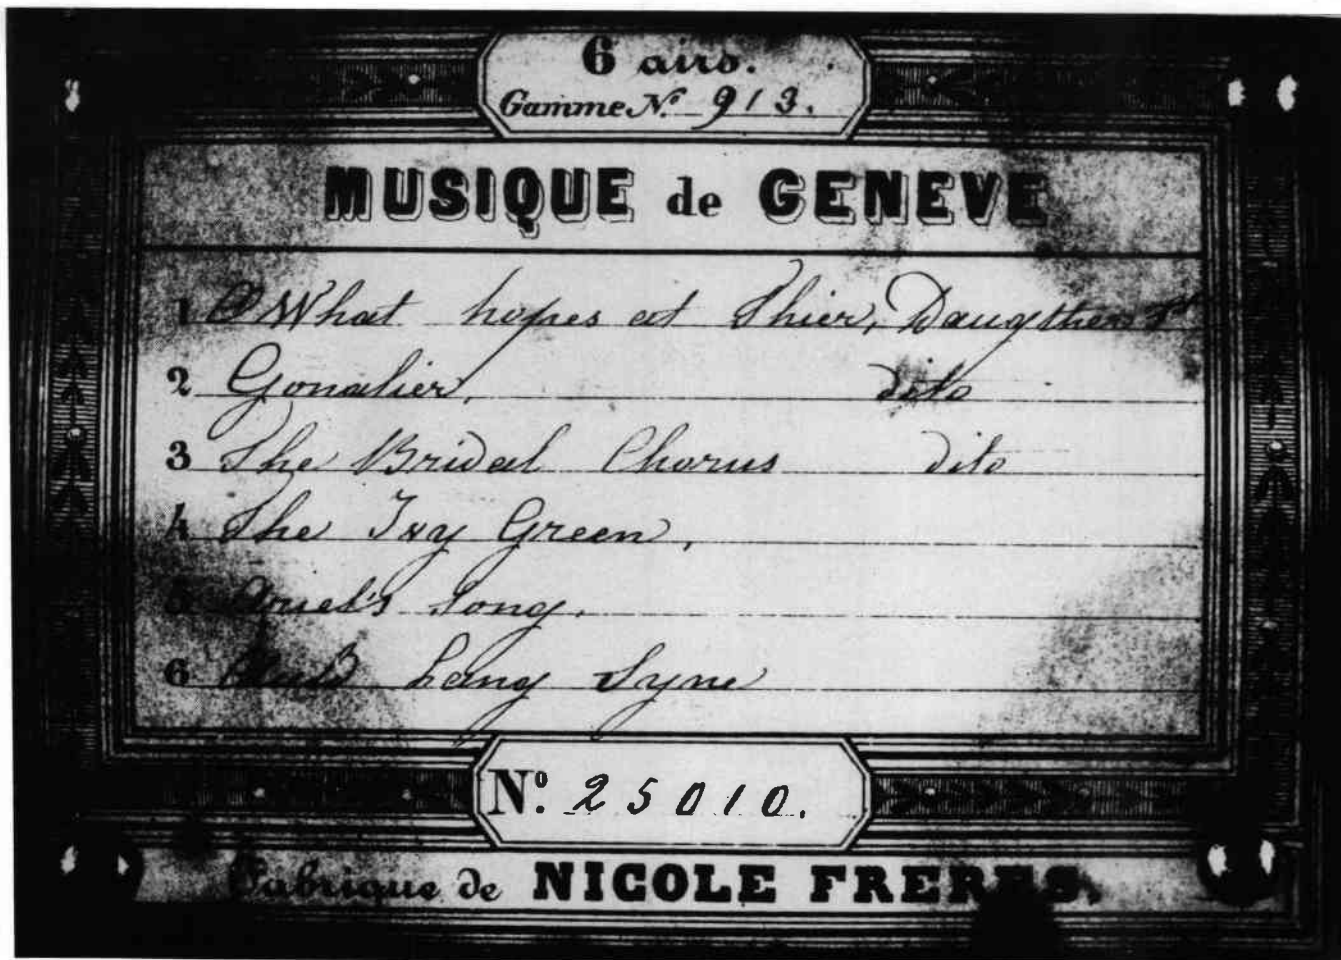 6 airs.
Gamme No. 913.
MUSIQUE de GENEVE
1 O What hopes at Thier, Daugther St
2 Gonalier, dito
3 The Bridal Chorus dito
4 The Ivy Green,
5 Ariel's Song.
6 Auld Lang Syne
No. 25010.
Fabrique de NICOLE FRERES.